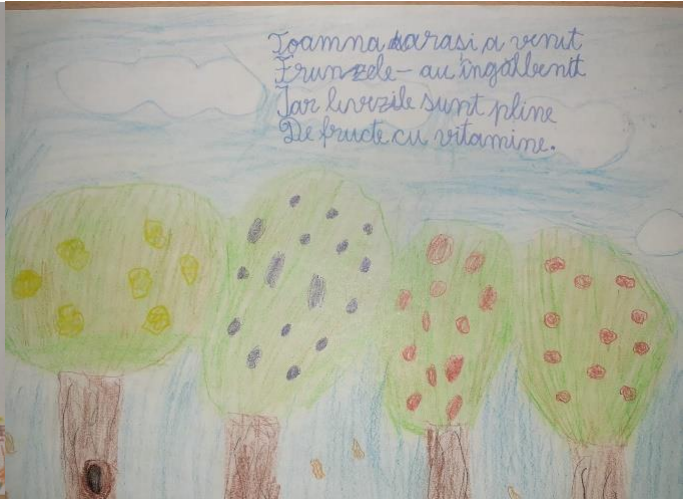 Toamna iarasi a venit
Frunzele-au îngălbenit
Iar livezile sunt pline
De fructe cu vitamine.